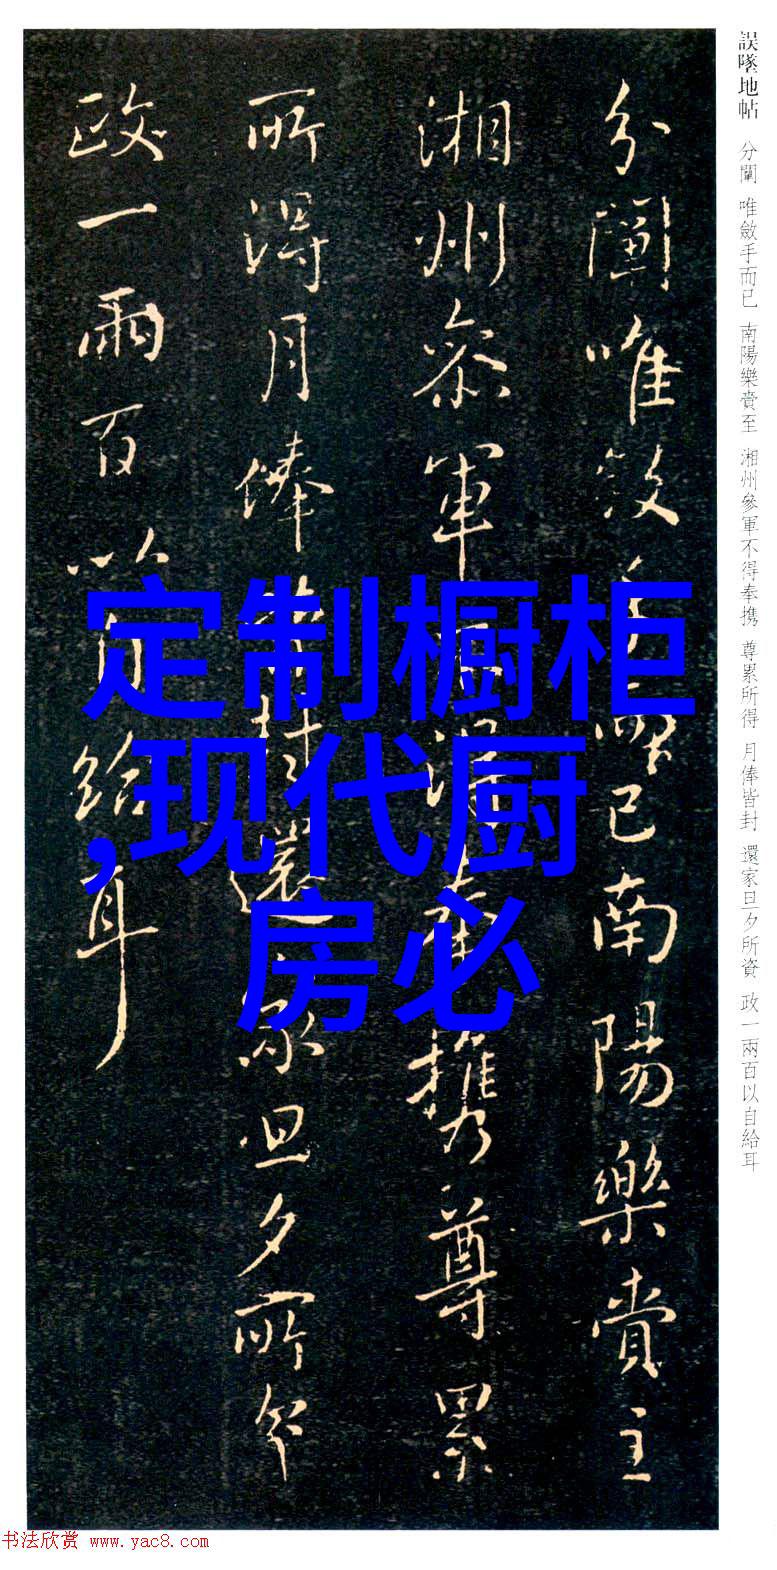 誤墜地帖 分闈 唯斂手而已 南陽樂賫至 湘州參軍不得奉携 尊累所得 月俸皆封 還家旦夕所資 政一兩百以自給耳
分闈唯斂手而已南陽樂賫至
湘州參軍不得奉携尊累
所得月俸皆封還家旦夕所資
政一兩百以自給耳
定制橱柜
,现代厨
房必
书法欣赏 www.yac8.com